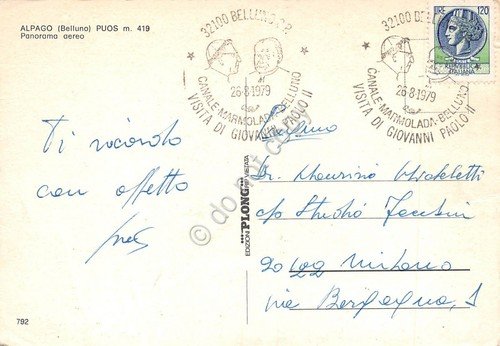 ALPAGO (Belluno) PUOS m. 419
Panorama aereo
32100 BELLUNO
26-8-1979
CANALE-MARMOLADA-BELLUNO
VISITA DI GIOVANNI PAOLO II
32100
26-8-1979
CANALE-MARMOLADA-BELLUNO
VISITA DI GIOVANNI PAOLO II
LIRE 120
ITALIANA
Ti ricordo
con affetto
EDIZIONI PLONG RIP. VIETATA
Dr. Maurizio
c/o Studio
20122 Milano
via Bergogna, 1
792